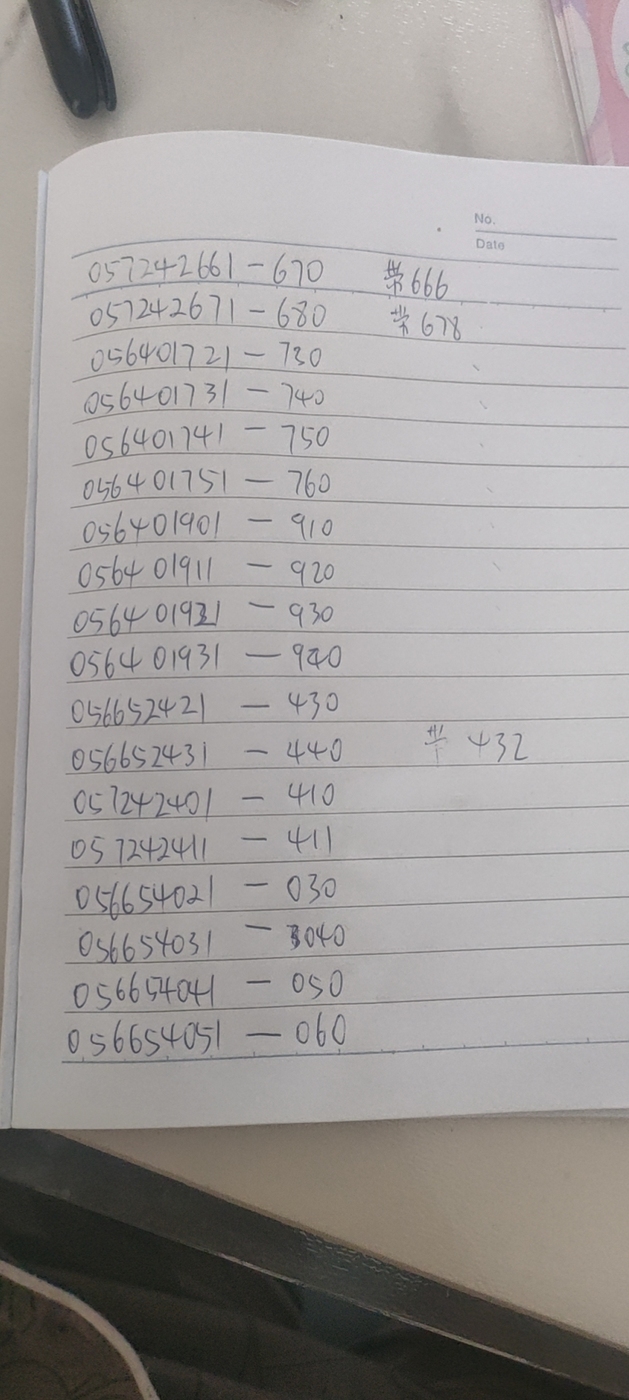 No.
Date
057242661-670 带666
057242671-680 带678
056401721-730
056401731-740
056401741-750
056401751-760
056401901-910
056401911-920
056401921-930
056401931-940
056652421-430
056652431-440 带 432
057242401-410
057242411-411
056654021-030
056654031-040
056654041-050
056654051-060